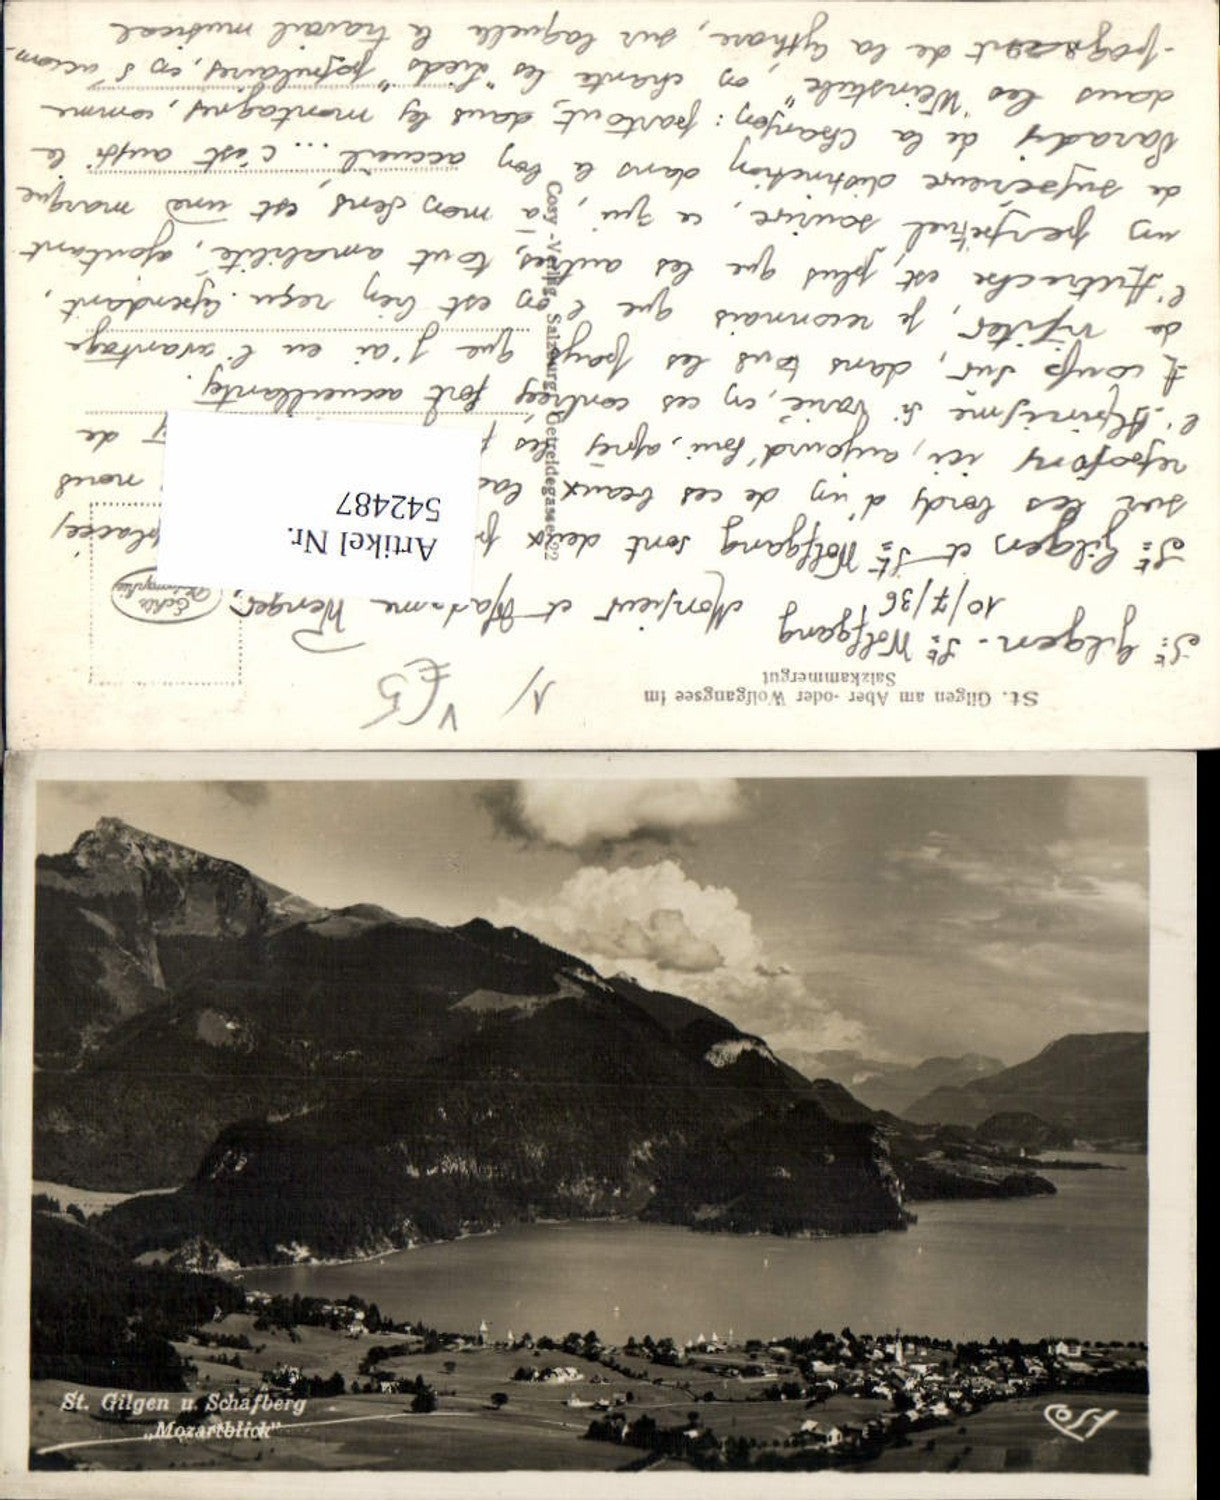 St. Gilgen am Aber- oder Wolfgangsee im
Salzkammergut
N
V €5
Echte Photographie
Cosy-Verlag, Salzburg, Getreidegasse 22
Artikel Nr.
542487
St. Gilgen - St. Wolfgang
10/7/36
Monsieur et Madame Wenger,
St. Gilgen et St. Wolfgang sont deux placées
sur les bords d'un de ces beaux nous
reposons ici, aujourd'hui, après les de
l'Alpinisme si varié, en ces contrées fort accueillantes.
A coup sur, dans tous les pays que j'ai eu l'avantage
de visiter, je reconnais que l'on est bien reçu. Cependant,
l'Autriche est, plus que les autres, tout amabilité, ajoutant
un perpétuel sourire, ce qui, à mon sens, est une marque
de supérieure distinction dans le bon accueil ... c'est aussi le
Paradis de la Chanson : partout, dans les montagnes, comme
dans les "Weinstube", on chante les "Lieds" populaires, en s'accom-
-pagnant de la Cythare, sur laquelle le travail musical
St. Gilgen u. Schafberg
„Mozartblick"